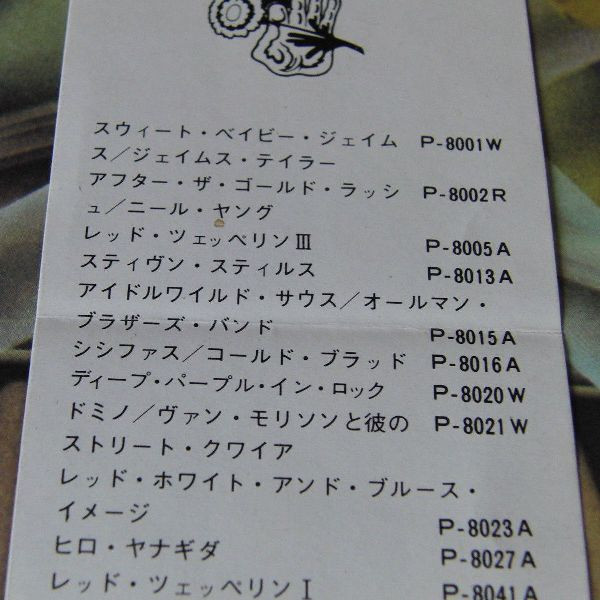 スウィート・ベイビー・ジェイム P-8001W
ス/ジェイムス・テイラー
アフター・ザ・ゴールド・ラッシ P-8002R
ュ/ニール・ヤング
レッド・ツェッペリンⅢ P-8005A
スティヴン・スティルス P-8013A
アイドルワイルド・サウス/オールマン・
ブラザーズ・バンド P-8015A
シシファス/コールド・ブラッド P-8016A
ディープ・パープル・イン・ロック P-8020W
ドミノ/ヴァン・モリソンと彼の P-8021W
ストリート・クワイア
レッド・ホワイト・アンド・ブルース・
イメージ P-8023A
ヒロ・ヤナギダ P-8027A
レッド・ツェッペリンⅠ P-8041A